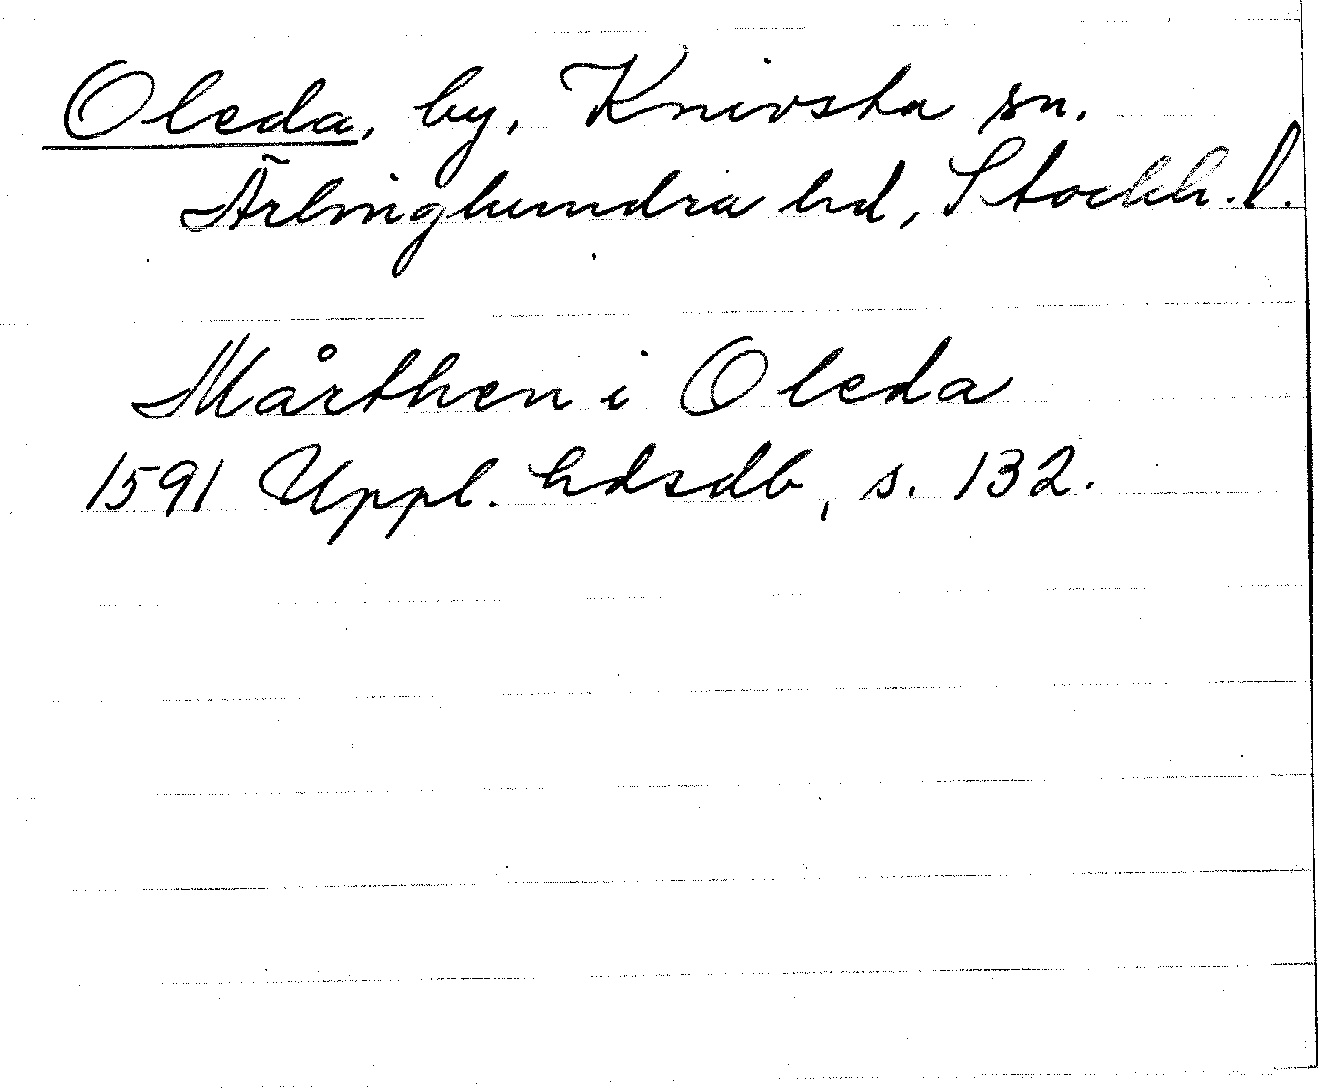 Oleda, by, Knivsta sn.
Ärlinghundra hd, Stockh. l.
Mårthen i Oleda
1591 Uppl. hdsdb, s. 132.